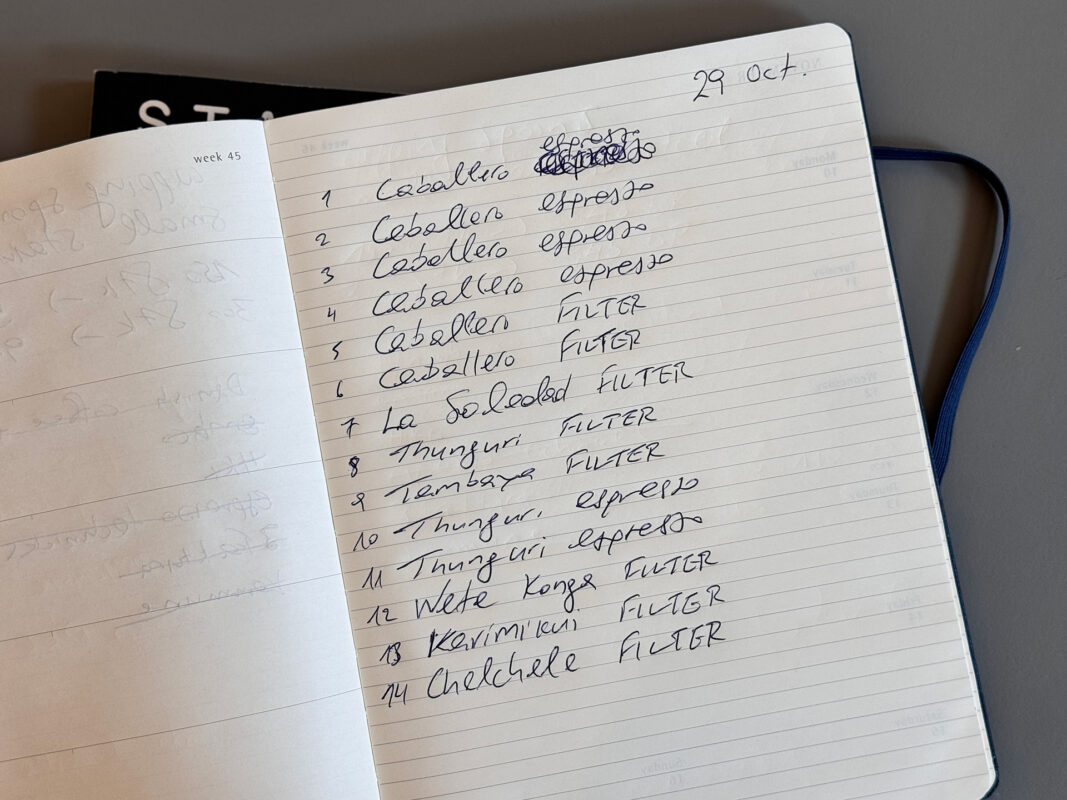 STA
week 45
29 Oct.
1 Caballero espresso
2 Caballero espresso
3 Caballero espresso
4 Caballero espresso
5 Caballero FILTER
6 Caballero FILTER
7 La Soledad FILTER
8 Thunguri FILTER
9 Tambaya FILTER
10 Thunguri espresso
11 Thunguri espresso
12 Wete Konga FILTER
13 Karimikui FILTER
14 Chelchele FILTER